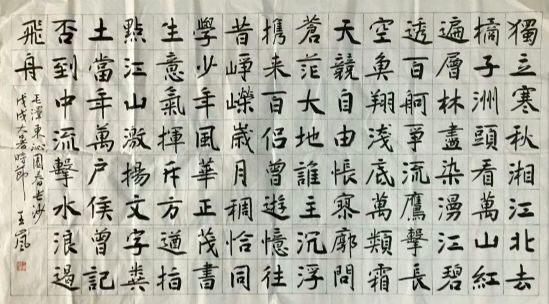 獨立寒秋湘江北去
橘子洲頭看萬山紅
遍層林盡染漫江碧
透百舸爭流鷹擊長
空魚翔淺底萬類霜
天競自由悵寥廓問
蒼茫大地誰主沉浮
携来百侣曾遊憶往
昔崢嶸歲月稠恰同
學少年風華正茂書
生意氣揮斥方遒指
點江山激揚文字糞
土當年萬户侯曾記
否到中流擊水浪遏
飛舟
毛澤東沁園春長沙
戊戌大暑時節 王嵐